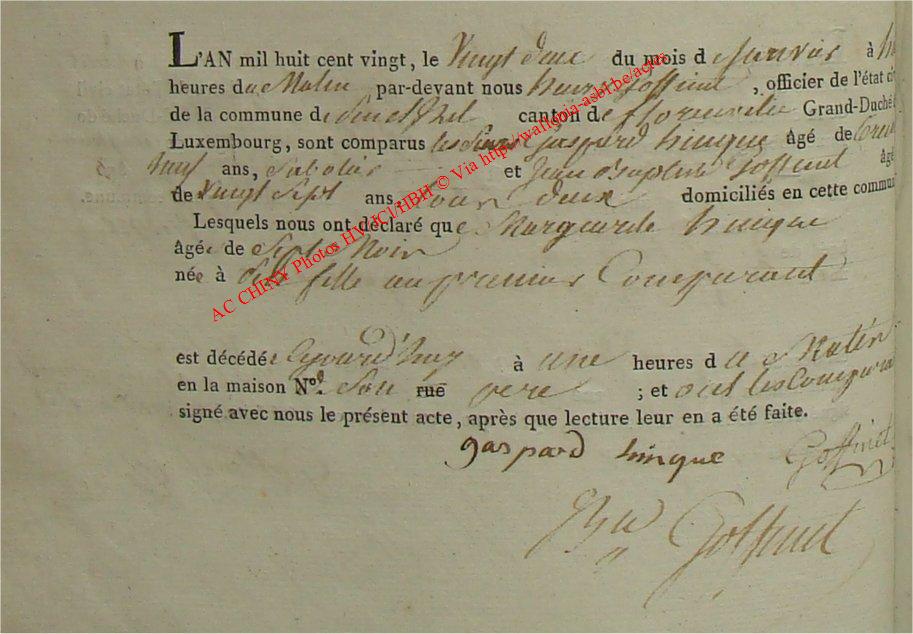 L'AN mil huit cent vingt, le Vingt deux du mois d Janvier à
heures du Matin par-devant nous Goffinet, officier de l'état ci
de la commune d canton de florenville Grand-Duché d
Luxembourg, sont comparus les Sieurs Gaspard hinque Agé de
neuf ans, Sabotier et Jean Baptiste Goffinet âgé
de Vingt Sept ans, tous deux domiciliés en cette commu
Lesquels nous ont déclaré que Marguerite hinque
Agée de Sept Mois
née à fille au premier Comparant
est décédée à une heures du Matin
en la maison N.º Son rue père ; et ont les Compara
signé avec nous le présent acte, après que lecture leur en a été faite.
gaspard hinque Goffinet
Goffinet
AC CHINY Photos HV/JCl/HBH © Via http://wallonia-asbl.be/actes